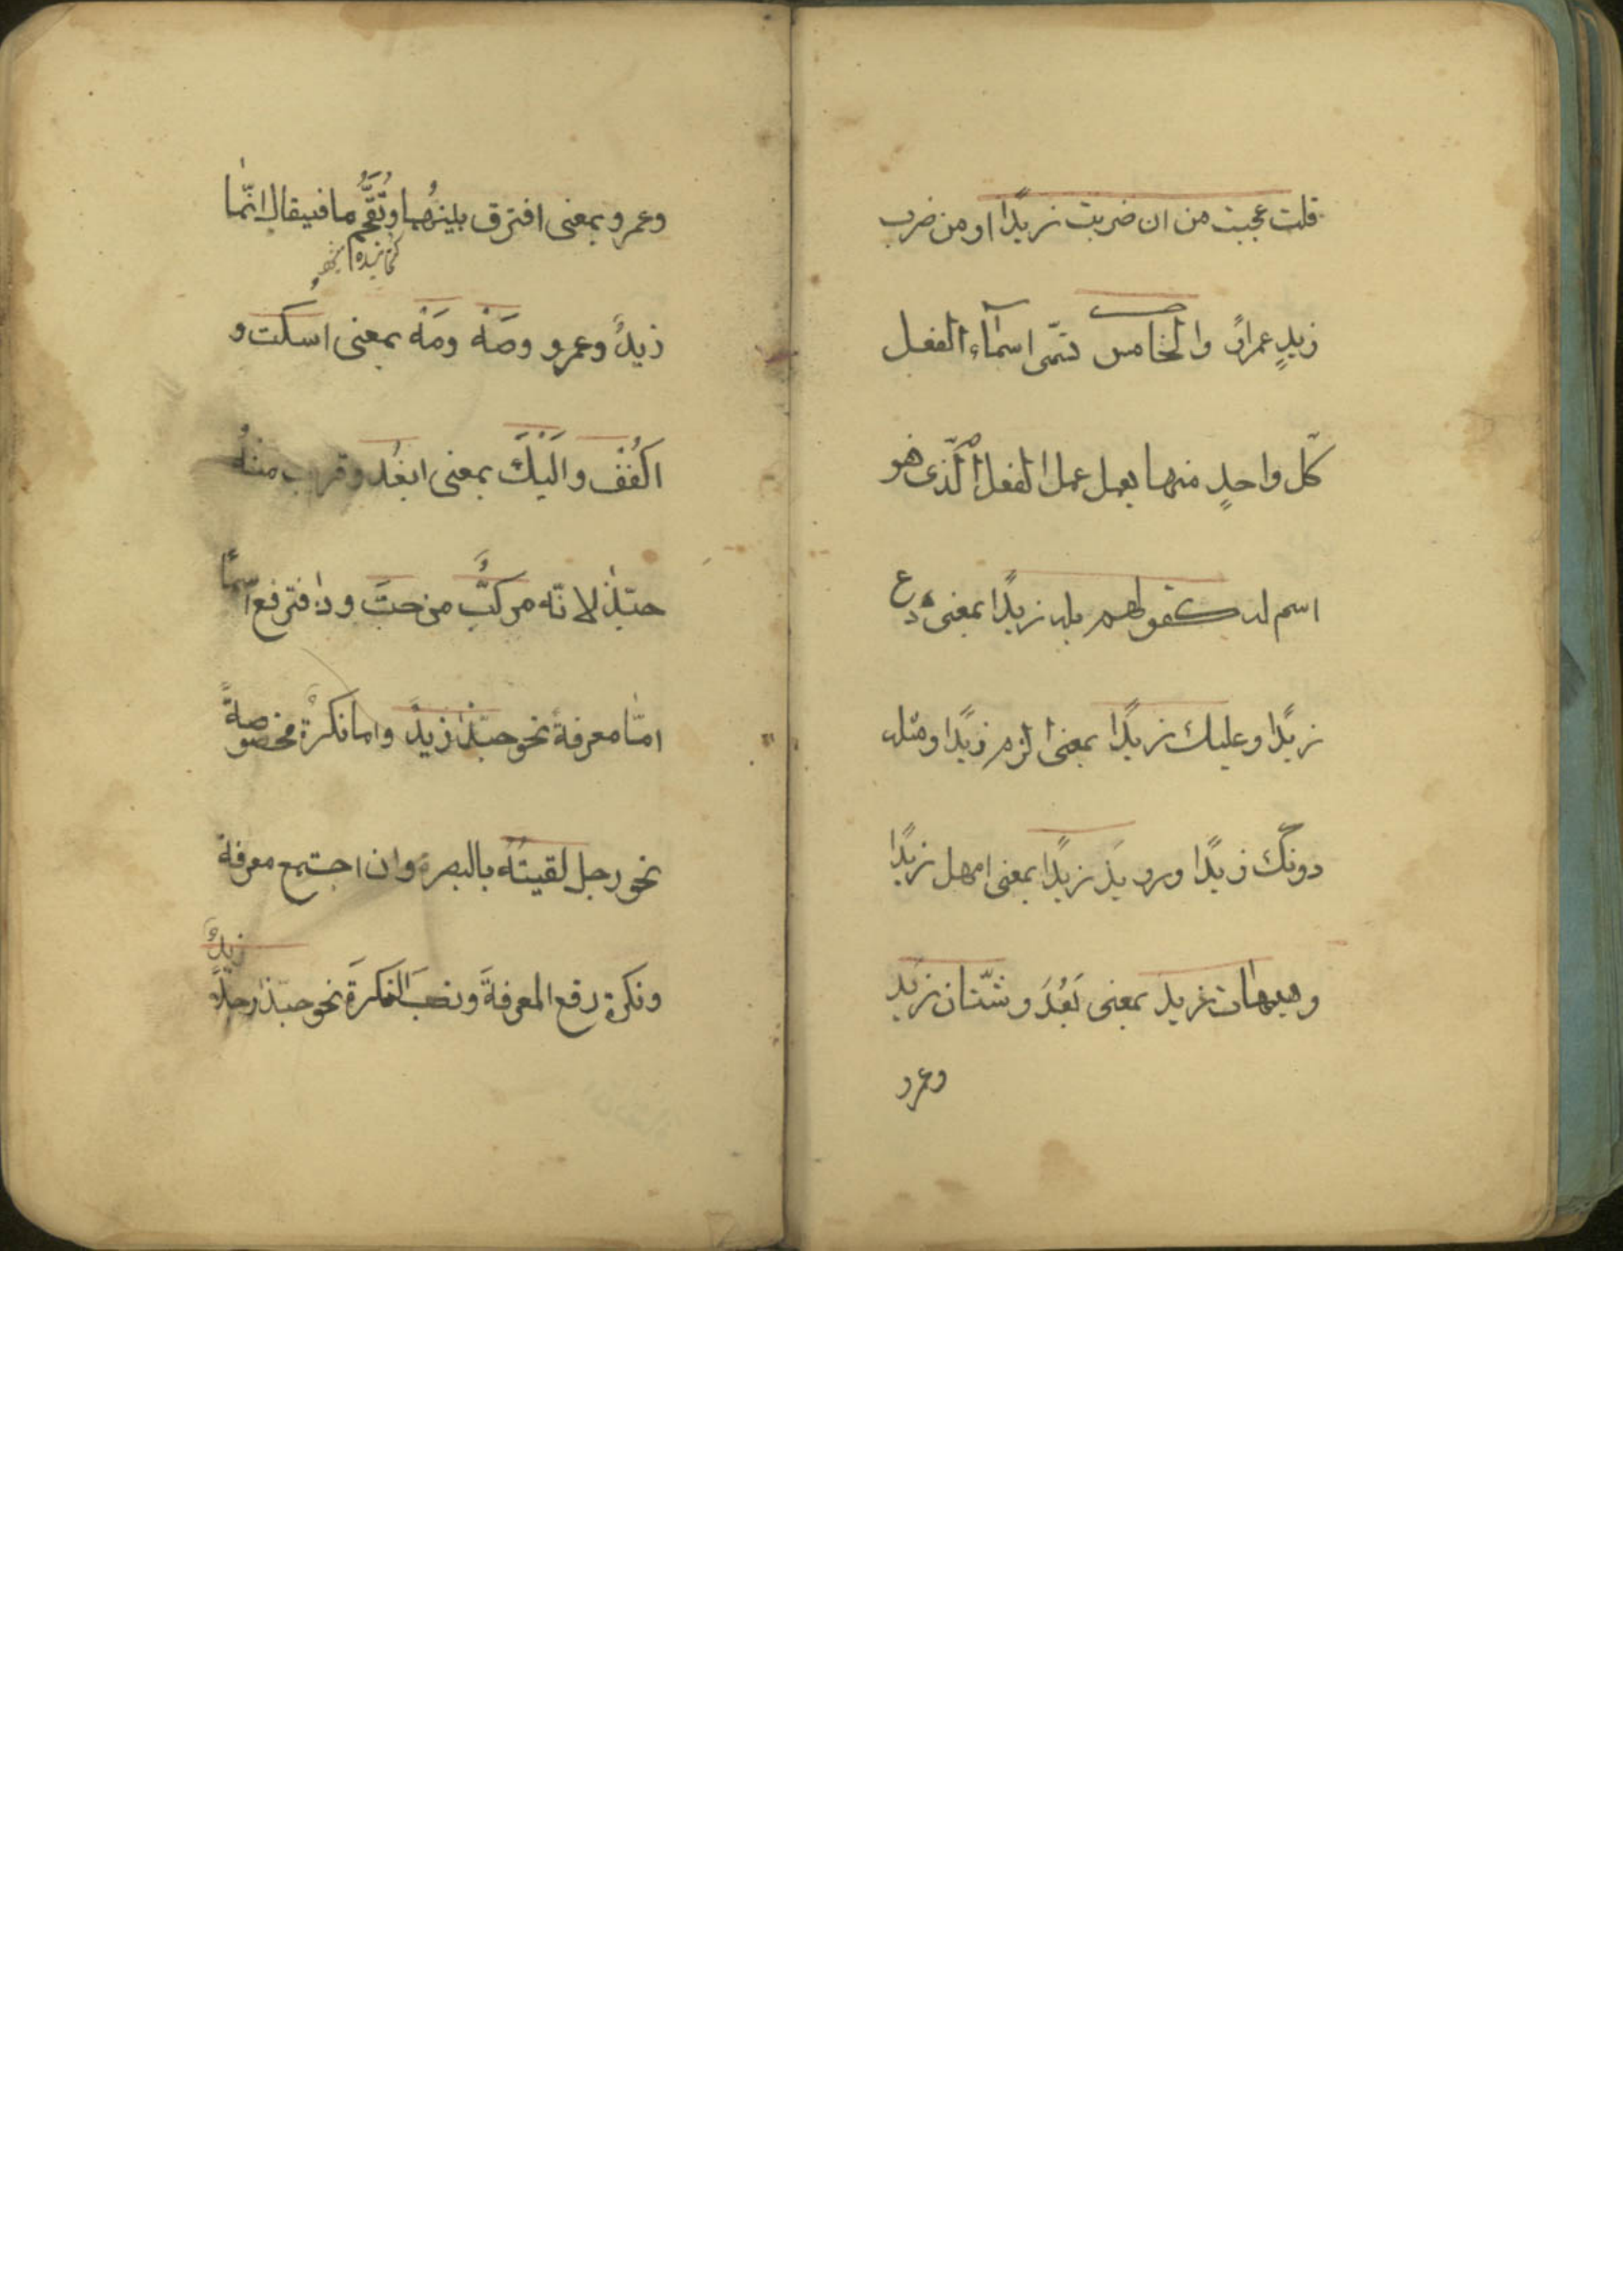 قلت عجبت من ان ضربت زيدًا او من ضرب
زيدٍ عمراً والخامس تسمّى اسماء الفعل
كلّ واحدٍ منها يعمل عمل الفعل الّذى هو
اسم له كقولهم بله زيدًا بمعنى دع
زيدًا وعليك زيدًا بمعنى الزم زيدًا ومثله
دونك زيدًا ورويد زيدًا بمعنى امهل زيدًا
وهيهات زيد بمعنى بَعُدَ وشتّان زيد
وعمرو
وعمرو بمعنى افترق بينهُما وتُقَحَّمُ ما فيقال انّما
زيدٌ وعمرو وصَهْ ومَهْ بمعنى اسكت و
اكفُفْ واليْكَ بمعنى ابعُد وقريب منهُ
حبّذا لانّه مركّبٌ من حبَّ وذا فترفع اسمًا
امّا معرفة نحو حبّذا زيدٌ واما نكرة مخصوصةً
نحو رجل لقيتهُ بالبصرة وان اجتمع معرفة
زيدٌ
ونكرة رفع المعرفةَ ونصب النكرةَ نحو حبّذا رجلاً